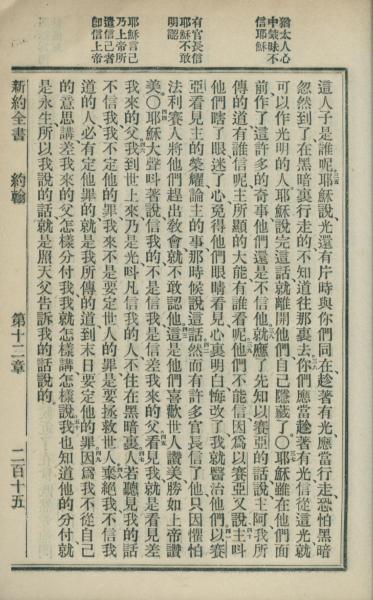 猶太人心
中蒙昧不
信耶穌
有官長信
耶穌不敢
明認
耶穌言己
乃上帝所
遣信己者
卽信上帝
這人子是誰呢耶穌說光還有片時與你們同在趁著有光應當行走恐怕黑暗
忽然到了在黑暗裏行走的不知道往那裏去你們應當趁著有光信從這光就
可以作光明的人耶穌說完這話就離開他們自己隱藏了〇耶穌雖在他們面
前作了這許多的奇事他們還是不信他就應了先知以賽亞的話說主阿我所
傳的道有誰信呢主所顯的大能有誰看呢他們不能信因為以賽亞又說主呌
他們瞎了眼迷了心免得他們眼睛看見心裏明白悔改了我就醫治他們以賽
亞看見主的榮耀論主的事那時候說這話然而有許多官長信了他只因懼怕
法利賽人將他們趕出敎會就不敢認他這是他們喜歡世人讚美勝如上帝讚
美〇耶穌大聲呌著說信我的不是信我是信差我來的父看見我就是看見差
我來的父我到世上來乃是光呌凡信我的人不住在黑暗裏人若聽見我的話
不信我我不定他的罪我來不是要定世人的罪是要拯救世人棄絕我不信我
道的人必有定他罪的就是我所傳的道到末日要定他的罪因為我不從自己
的意思講差我來的父怎樣分付我我就怎樣講怎樣說我也知道他的分付就
是永生所以我說的話就是照天父告訴我的話說的
新約全書
約翰
第十二章
二百十五